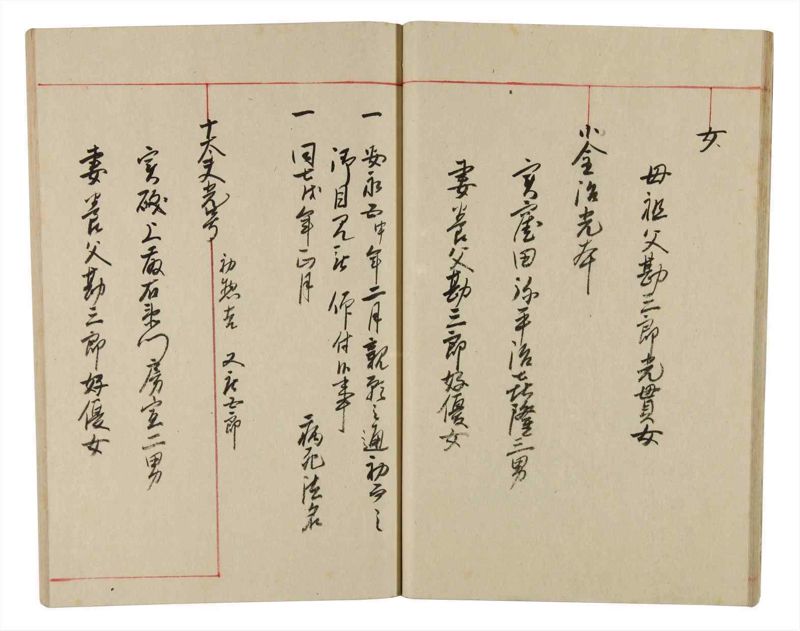 女
母祖父勘三郎光貫女
小金治光本
実窪田弥平治長隆三男
妻養父勘三郎好優女
一 安永五申年二月親願之通初而之
御目見被 仰付候事
一 同七戌年正月 病死法名
十太夫光号 初惣吉 又五郎
実破上 右衛門房宣二男
妻養父勘三郎好優女